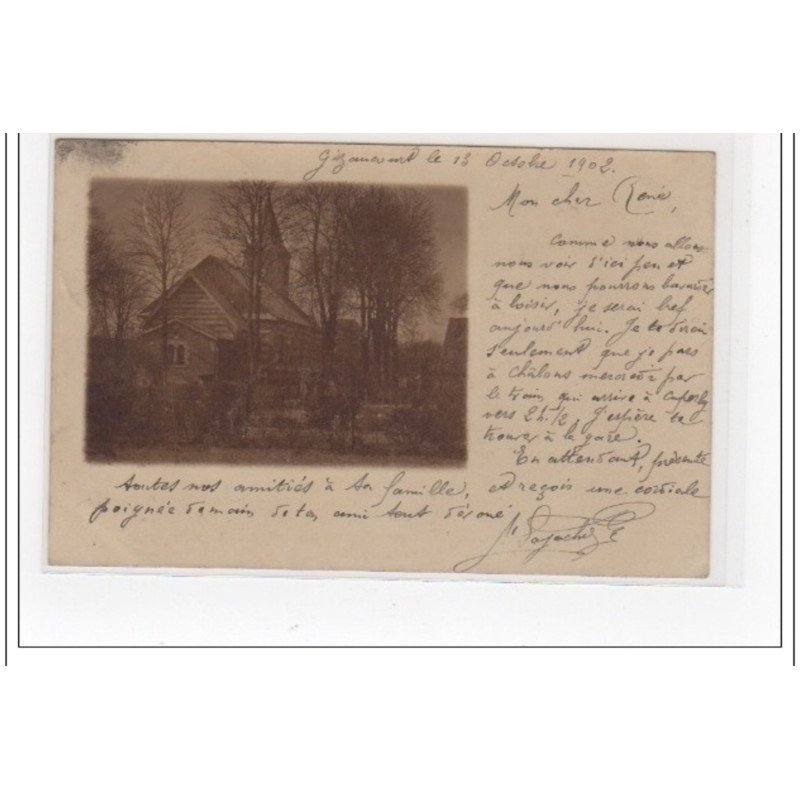 Gizaucourt le 13 Octobre 1902.
Mon cher René,
Comme nous allons
nous voir d'ici peu et
que nous pourrons bavarder
à loisir, je serai bref
aujourd'hui. Je te dirai
seulement que je pars
à Châlons mercredi par
le train qui arrive à Cuperly
vers 2h 1/2, J'espère te
trouver à la gare.
En attendant, présente
toutes nos amitiés à ta famille, et reçois une cordiale
poignée de main de ton ami tout dévoué